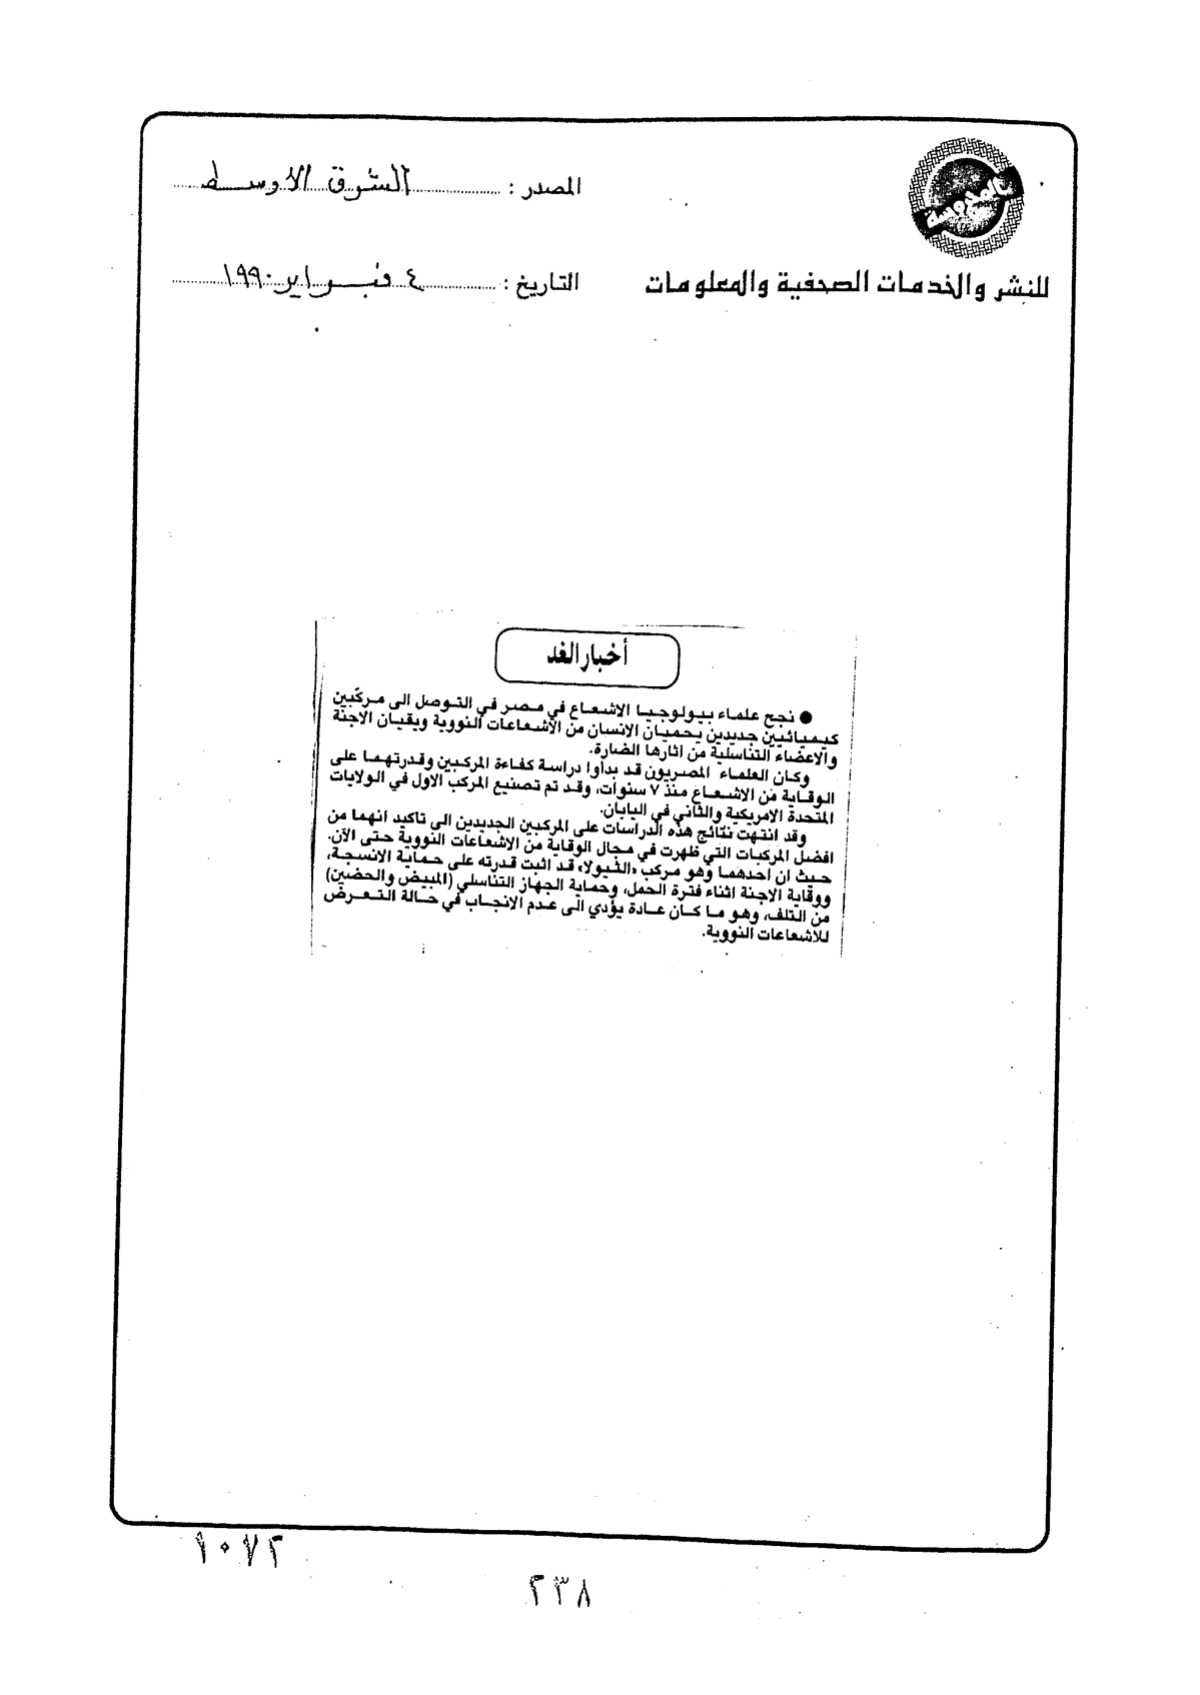 المصدر : الشرق الأوسط
للنشر والخدمات الصحفية والمعلومات
التاريخ : ٤ فبراير ١٩٩٠
أخبار الغد
● نجح علماء بيولوجيا الاشعاع في مصر في التوصل الى مركّبين
كيميائيين جديدين يحميان الانسان من الاشعاعات النووية ويقيان الاجنة
والاعضاء التناسلية من آثارها الضارة.
وكان العلماء المصريون قد بدأوا دراسة كفاءة المركبين وقدرتهما على
الوقاية من الاشعاع منذ ٧ سنوات، وقد تم تصنيع المركب الاول في الولايات
المتحدة الامريكية والثاني في اليابان.
وقد انتهت نتائج هذه الدراسات على المركبين الجديدين الى تاكيد انهما من
افضل المركبات التي ظهرت في مجال الوقاية من الاشعاعات النووية حتى الآن.
حيث ان احدهما وهو مركب «الثيولا» قد اثبت قدرته على حماية الانسجة،
ووقاية الاجنة اثناء فترة الحمل، وحماية الجهاز التناسلي (المبيض والحضين)
من التلف، وهو ما كان عادة يؤدي الى عدم الانجاب في حالة التعرض
للاشعاعات النووية.
١٠٧٢
٢٣٨